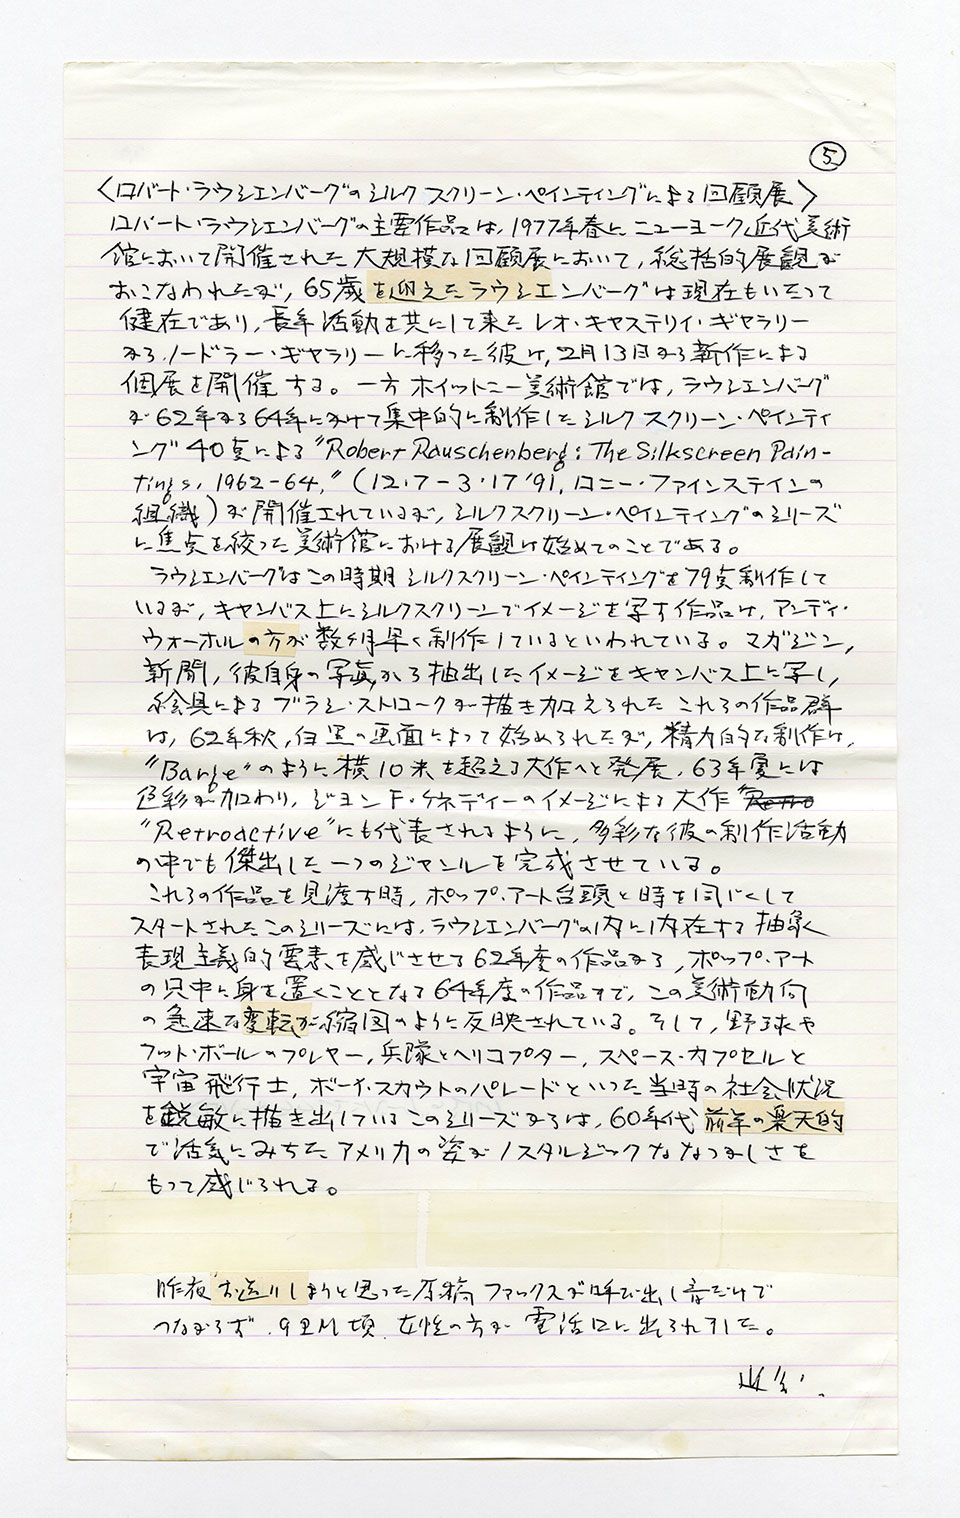 ⑤
〈ロバート・ラウシエンバーグのシルク スクリーン・ペインティングによる回顧展〉
ロバート・ラウシエンバーグの主要作品は、1977年春に ニューヨーク近代美術
館において開催された大規模な回顧展において、総括的展観が
おこなわれたが、65歳を迎えたラウシエンバーグは現在もいたって
健在であり、長年活動を共にして来たレオ・キャステリイ・ギャラリー
から、ノードラー・ギャラリーに移った彼は、2月13日から新作による
個展を開催する。一方ホイットニー美術館では、ラウシエンバーグ
が62年から64年にかけて集中的に制作したシルク スクリーン・ペインティ
ング40点による“Robert Rauschenberg: The Silkscreen Pain-
tings, 1962-64,”(12・7-3・17 '91, ロニー・ファインステインの
組織)が開催されているが、シルクスクリーン・ペインティングのシリーズ
に焦点を絞った美術館における展観は始めてのことである。
ラウシエンバーグはこの時期シルクスクリーン・ペインティングを79点制作して
いるが、キャンバス上にシルクスクリーンでイメージを写す作品は、アンディ・
ウォーホルの方が数ヶ月早く制作しているといわれている。マガジン、
新聞、彼自身の写真から抽出したイメージをキャンバス上に写し、
絵具によるブラシ・ストロークが描き加えられたこれらの作品群
は、62年秋、白黒の画面によって始められたが、精力的な制作は、
“Barge”のように横10米を超える大作へと発展、63年夏には
色彩が加わり、ジョン F・ケネディーのイメージによる大作“Retro
“Retroactive”にも代表されるように、多彩な彼の制作活動
の中でも傑出した一つのジャンルを完成させている。
これらの作品を見渡す時、ポップ・アート台頭と時を同じくして
スタートされたこのシリーズには、ラウシエンバーグの内に内在する抽象
表現主義的要素を感じさせる62年度の作品から、ポップ・アート
の只中に身を置くこととなる64年度の作品まで、この美術動向
の急速な変転が縮図のように反映されている。そして、野球や
フットボールのプレヤー、兵隊とヘリコプター、スペース・カプセルと
宇宙飛行士、ボーイ・スカウトのパレードといった当時の社会状況
を鋭敏に描き出しているこのシリーズからは、60年代前半の楽天的
で活気にみちたアメリカの姿がノスタルジックななつかしさを
もって感じられる。
昨夜お送りしようと思った原稿ファックスが呼び出し音だけで
つながらず、9PM頃、女性の方が電話口に出られました。